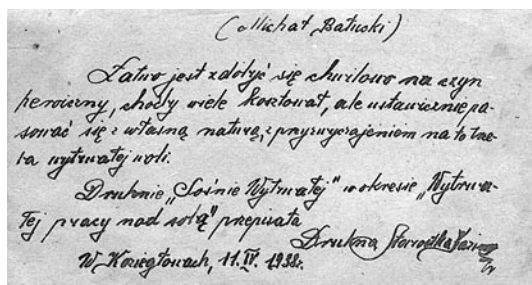 (Michał Bałucki)
Łatwo jest zdobyć się chwilowo na czyn
heroiczny, choćby wiele kosztował, ale ustawicznie pa-
sować się z własną naturą, z przyzwyczajeniem na to trze-
ba wytrwałej woli.
Druhnie „Sośnie Wytrwałej” w okresie „Wytrwa-
łej pracy nad sobą” przepisała
Druhna
W Koziegłowach, 11.IV. 1938r.